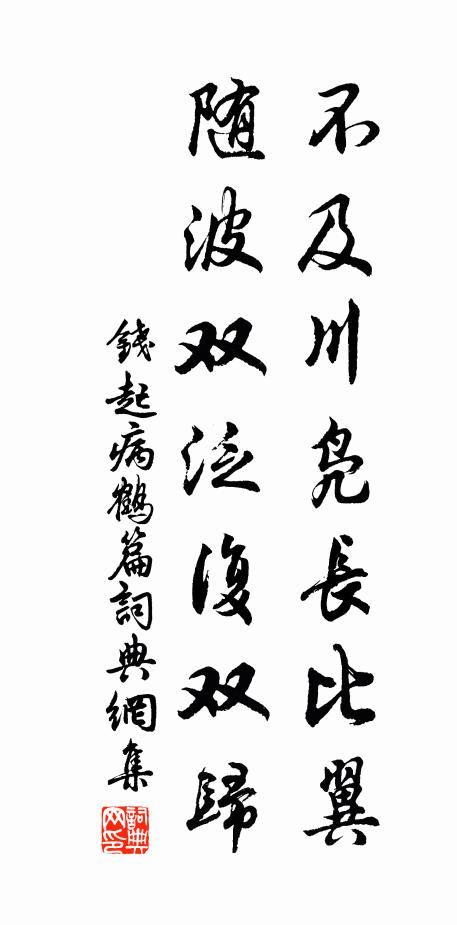 不及川凫長比翼
随波双泛復双歸
錢起病鶴篇詞典網集
詞典网印